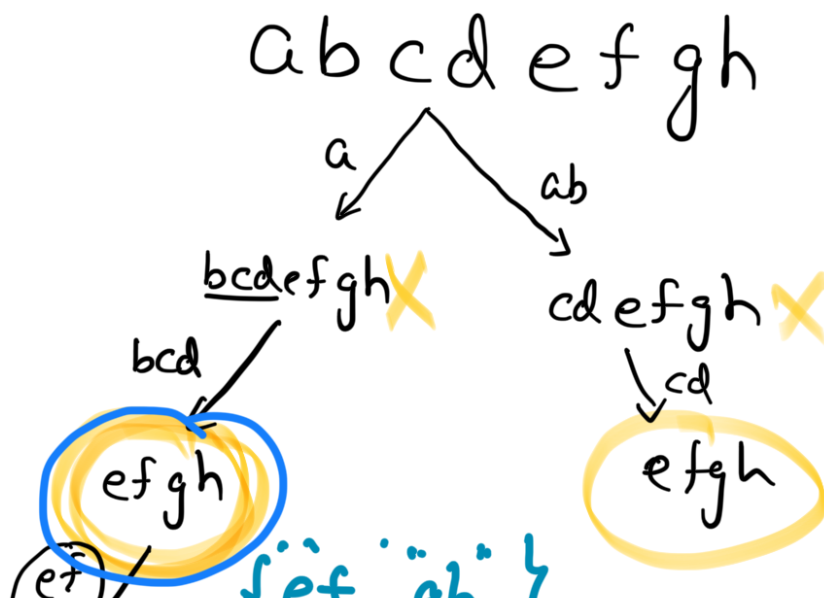 abcdefgh
a
ab
bcdefgh
cdefgh
bcd
cd
efgh
efgh
ef
{"ef"